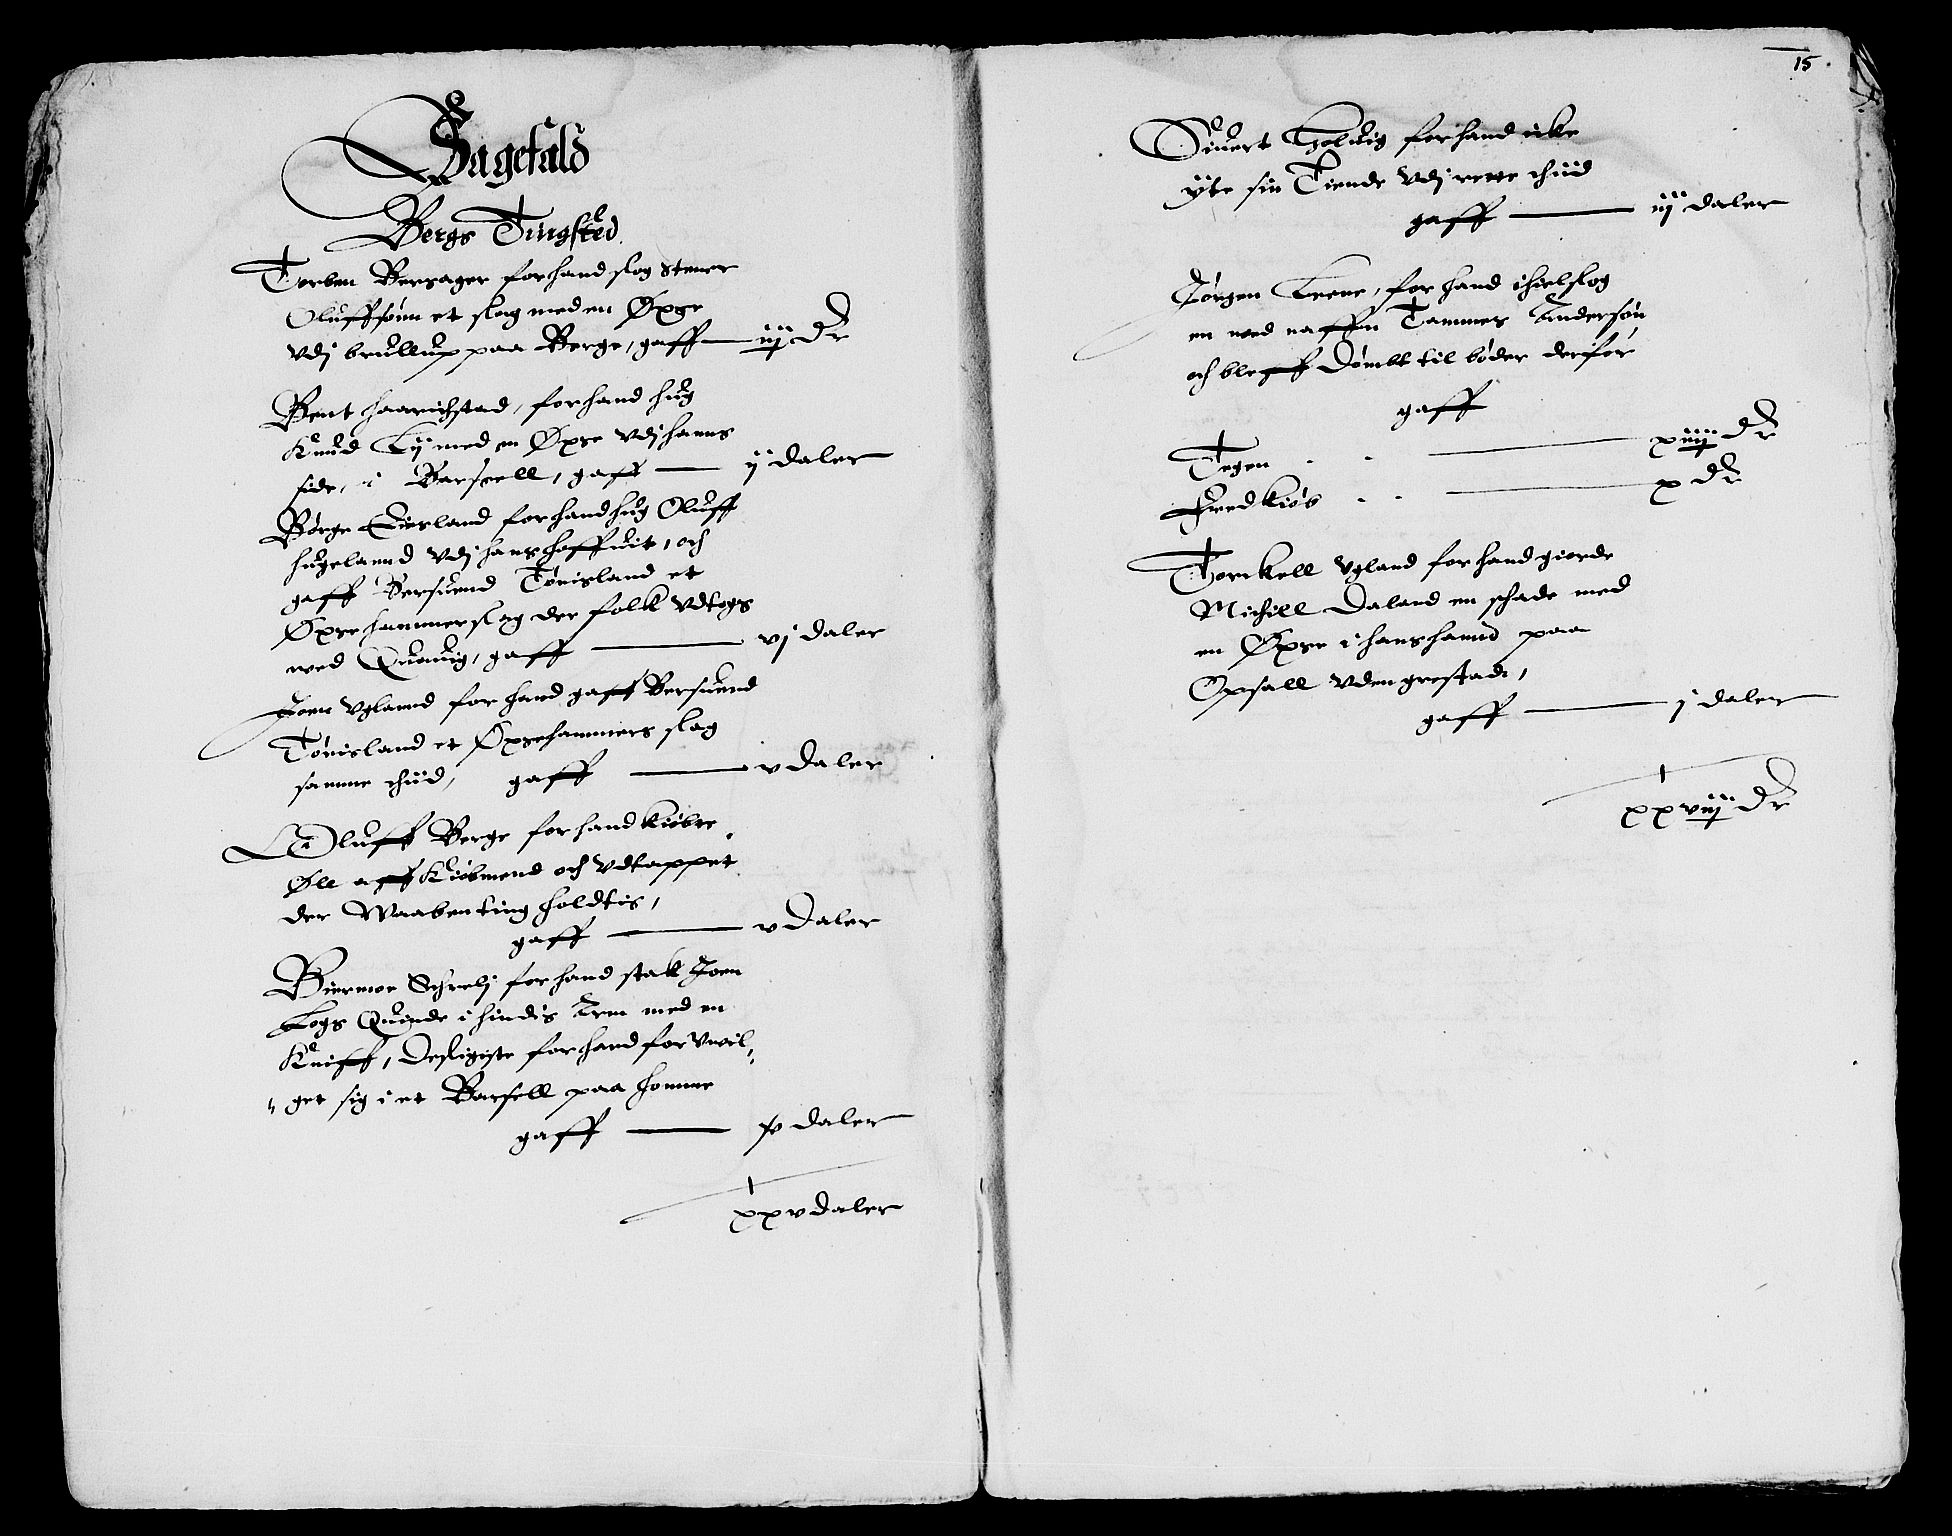 Sagefald
Bergs Tingsted
Torben Bersager for hand slog Stener
Oluffsønn et slag med en Øxse
vdj brullup paa Berge, gaff — iij Dr
Bent Haarichstad, for hand hug
Knud Lij med en Øxse vdj hanns
side, i Barsell, gaff — ij daler
Børge Eiesland for hand hug Oluff
hugelannd vdj hans hoffuit, och
gaff Bersuend Tønisland et
Øxsehammerslag der folk vdtogs
wed Quauig, gaff — vj daler
Joen Vglannd for hand gaff Bersuend
Tønisland et Øxsehammers slag
samme thiid, gaff — v daler
Oluff Berge for hand kiøbte
Øll aff Kiøbmend och vdtappet
der Waabenting holdtis,
gaff — v daler
Biermoe Schrelj for hand stak Joen
Logs Quinde i hindis Arm med en
Kniff, Desligiste for hand for vuil-
get sig i et Barsell paa homme
gaff — iv daler
xxv daler
15
Siuert Holuig for hand icke
ÿte sin Tiende vdj rette thiid
gaff — iij daler
Jørgen Leere, for hand ihielslog
en wed naffn Tammes Andersøn
och bleff Dømbt til bøder derfor
gaff
Tegen — xiiij dr
Fredkiøb — x dr
Torkell Vgland for hand giorde
Michill Daland en schade med
en Øxse i hans hannd paa
Opsall vden grestadt,
gaff — j daler
xxviij Dr